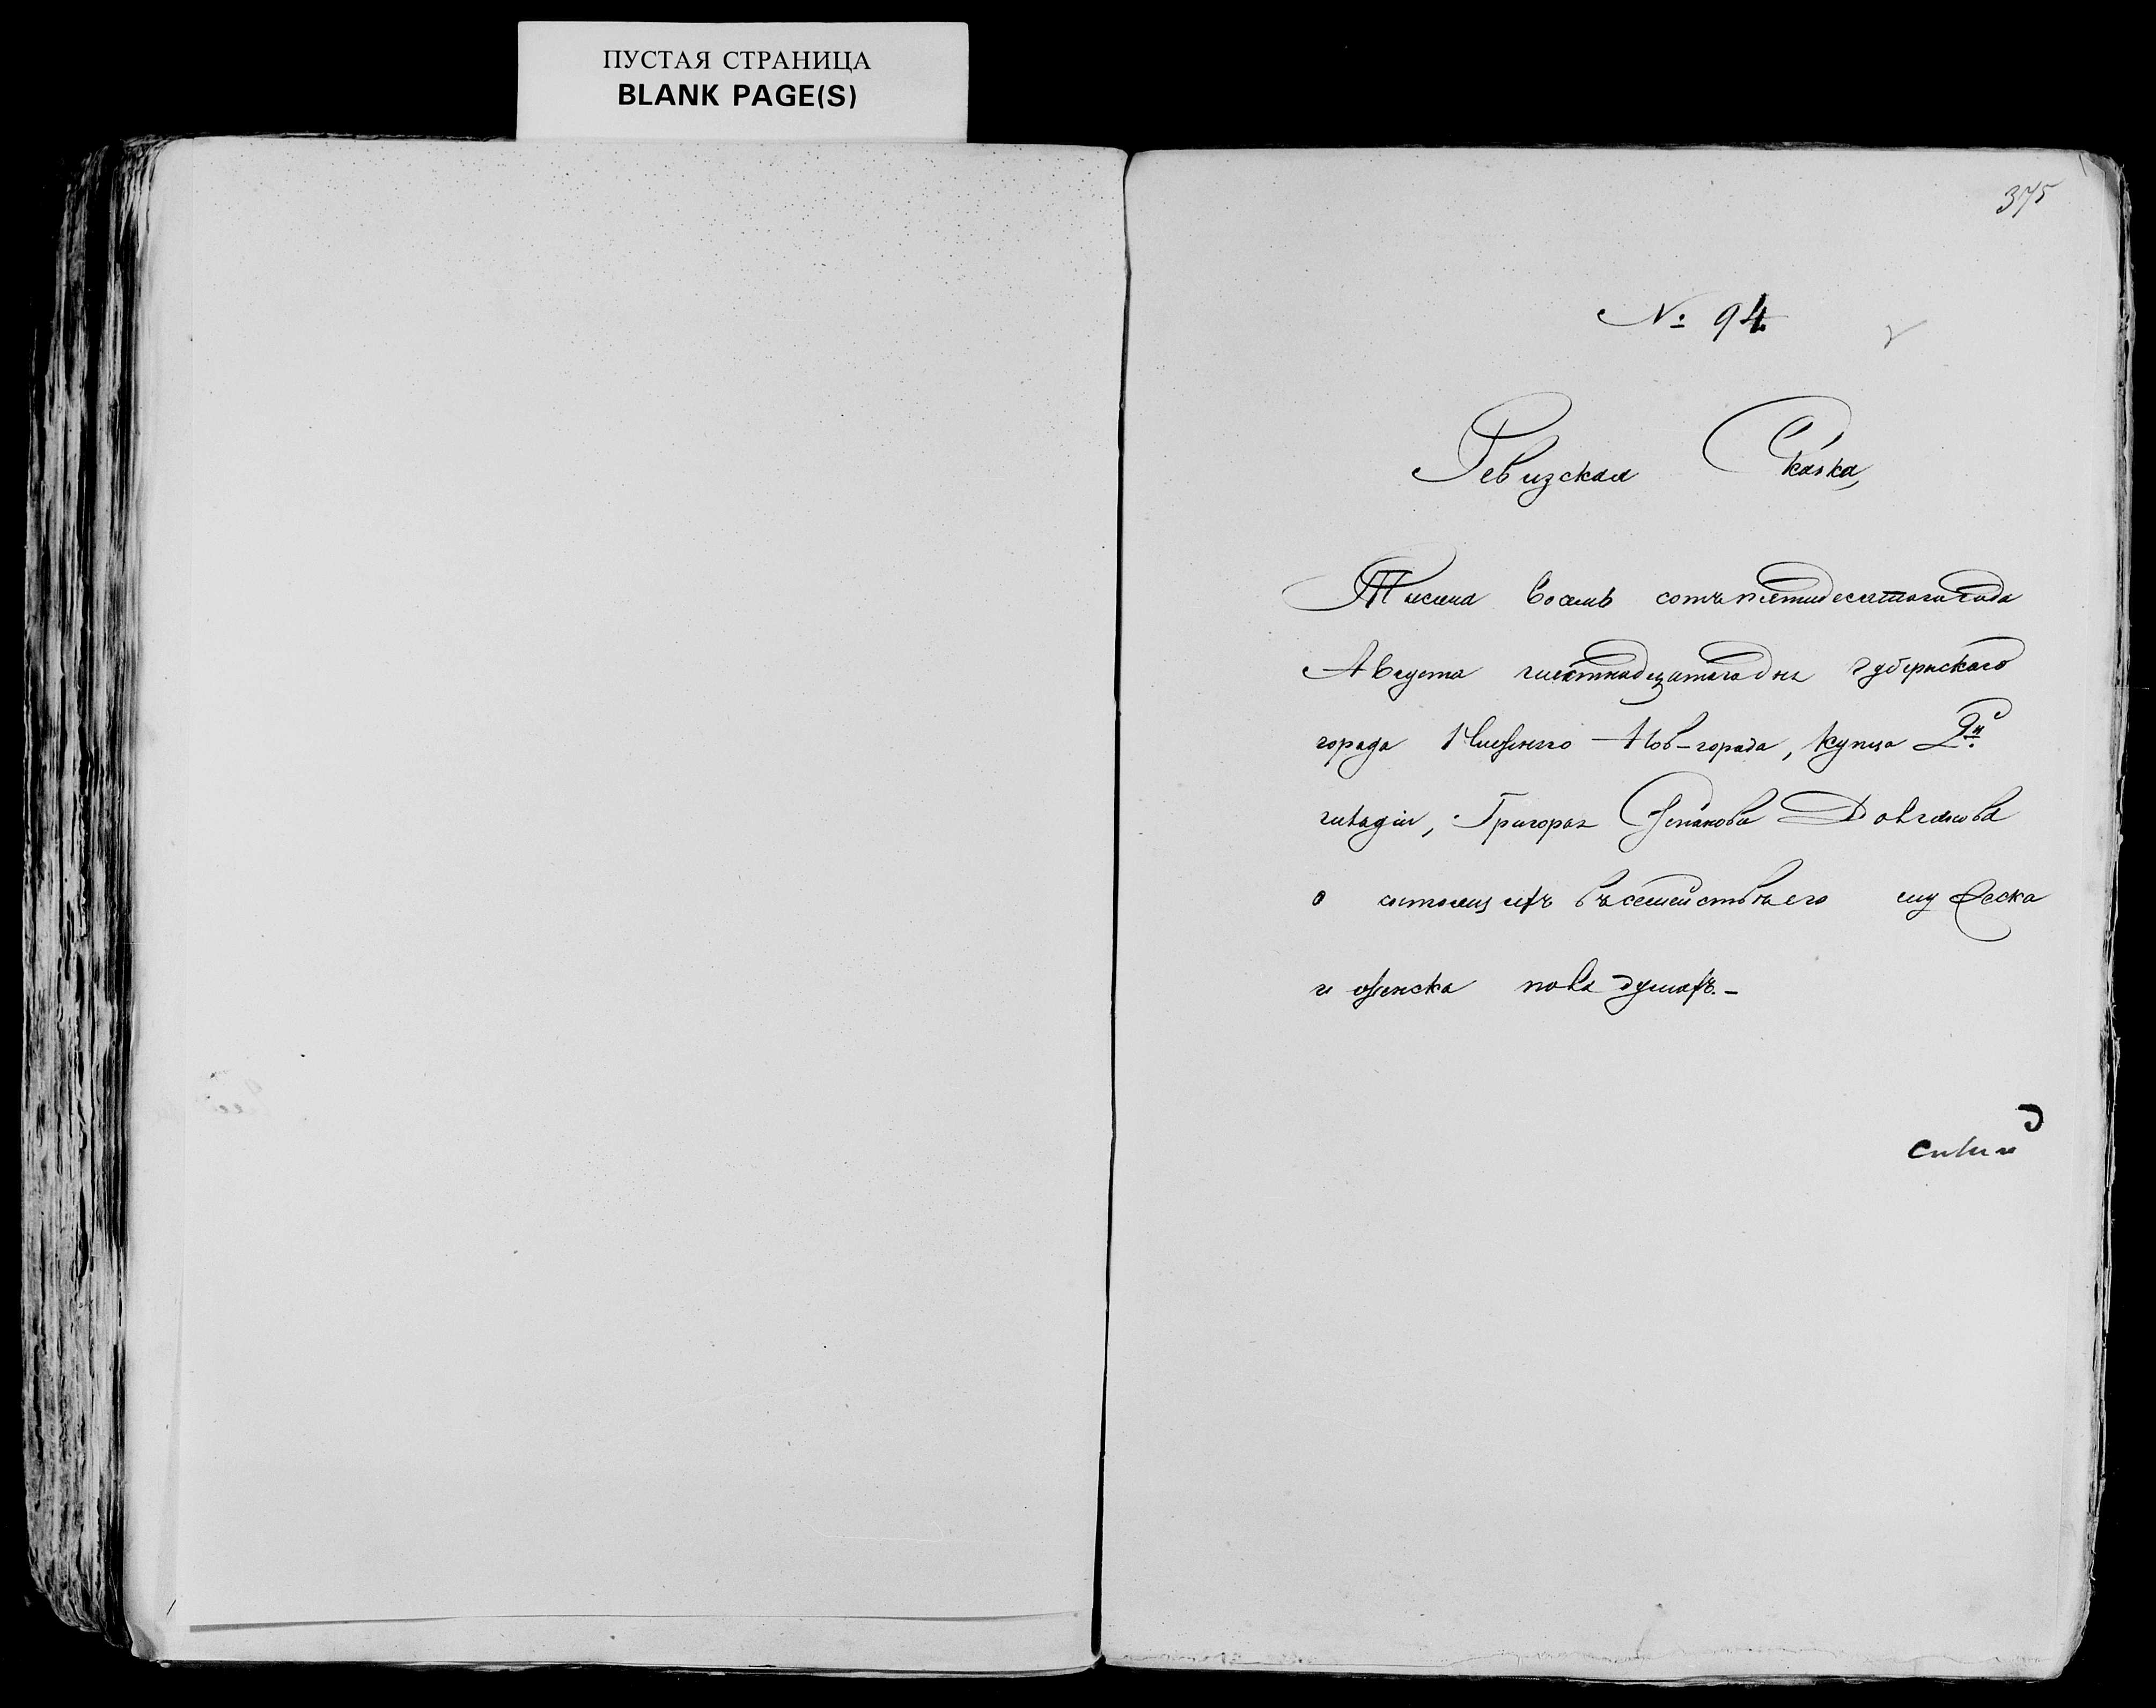 ПУСТАЯ СТРАНИЦА
BLANK PAGE(S)
375
№ 94
Ревизская Скаска,
Тысеча восемь сотъ пятидесятаго года
Августа шестнадцатаго дня Губернскаго
города Нижняго Нов-города, купца 2й
гилдіи, Григорья Степанова Довганова
о состоящихъ въ семействѣ его мужеска
и женска пола душахъ.-